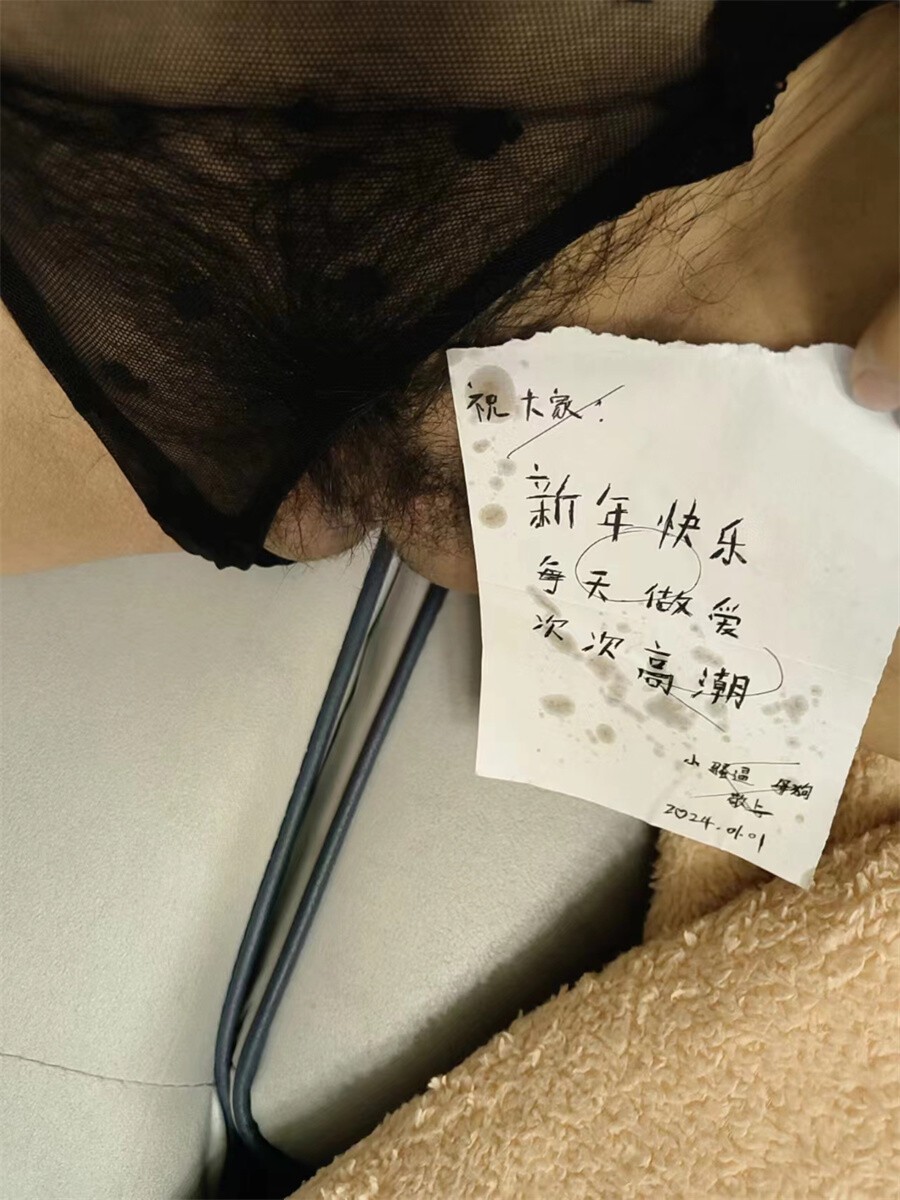 祝大家：
新年快乐
每天做爱
次次高潮
小骚逼 母狗
敬上
2024.01.01